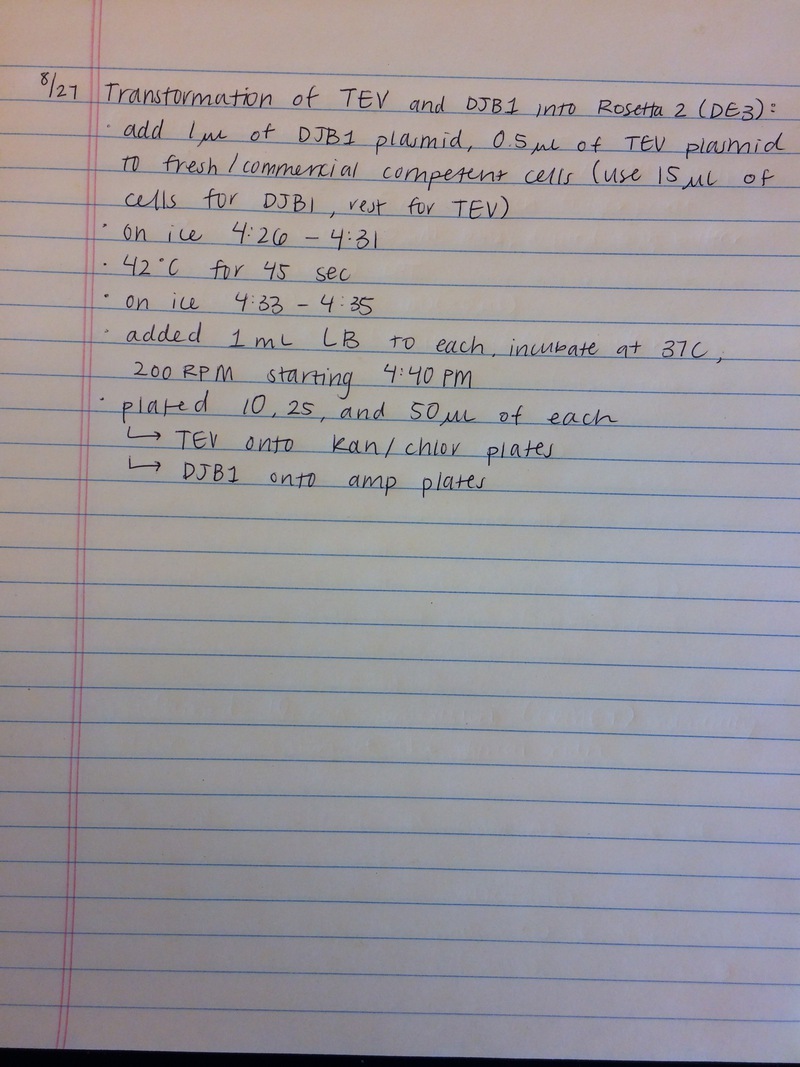 8/27 Transformation of TEV and DJB1 into Rosetta 2 (DE3):
· add 1µL of DJB1 plasmid, 0.5µL of TEV plasmid
to fresh/commercial competent cells (use 15µL of
cells for DJB1, rest for TEV)
· on ice 4:26 – 4:31
· 42°C for 45 sec
· on ice 4:33 – 4:35
· added 1mL LB to each, incubate at 37C,
200 RPM starting 4:40 PM
· plated 10, 25, and 50µL of each
↳ TEV onto kan/chlor plates
↳ DJB1 onto amp plates